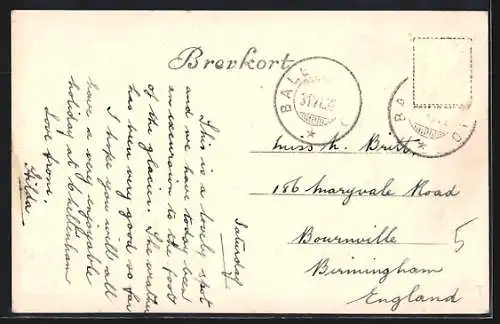 Brevkort
Saturday
This is a lovely spot
and we have today been
an excursion to the foot
of the glacier. The weather
has been very good so far
I hope you will all
have a very enjoyable
holiday at Cheltenham
Love from
Hilda
BALE
31 VII
Miss M. Britt.
186 Maryvale Road
Bournville
Birmingham
England
5